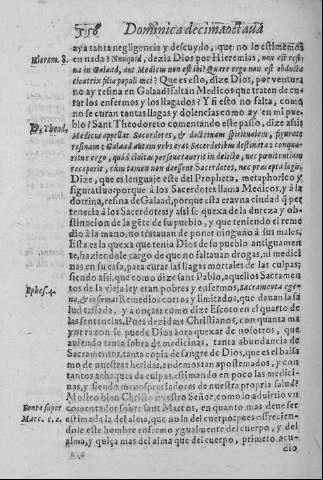 358 Dominica decimaoctaua
aya tanta negligencia y descuydo, que no lo estimemos
Hierem. 8. en nada? Nunquid, dezia Dios por Hieremias, non est resi-
na in Galaad, aut Medicus non est ibi? Quare ergo non est obducta
cicatrix filiæ populi mei? Que es esto, dize Dios, por ventura
no ay resina en Galaad? faltan Medicos que traten de cu-
rar los enfermos y los llagados? Y si esto no falta, como
no se curan tantas llagas y dolencias como ay en mi pue-
D. Theod. blo? Sant Theodoreto comentando este passo, dize assi:
Medicus appellat Sacerdotes, & doctrinam spiritualem, figuratè
resinam: Galaad autem vrbs erat Sacerdotibus destinata: conque-
ritur ergo, quòd ciuitas perseuerauerit in delicto, nec pœnitentiam
receperit, cùm tamen non deessent Sacerdotes, nec præcepta legis.
Dize, que es lenguaje este del Propheta, metaphorico y
figuratiuo: porque à los Sacerdotes llama Medicos, y à la
dotrina, resina de Galaad, porque esta era vna ciudad que per
tenecia à los Sacerdotes: y assi se quexa de la dureza y ob-
stinacion de la gēte de su pueblo, y que teniendo el reme-
dio à la mano, no tratauan de poner ninguno à sus males.
Esta es la quexa que tenia Dios de su pueblo antiguamen-
te, haziendole cargo de que no faltauan drogas, ni medici
nas en su casa, para curar las llagas mortales de las culpas;
siendo assi, que como dize sant Pablo, aquellos Sacramen
Ephes. 4. tos de la vieja ley eran pobres y enfermos, Sacramenta ege-
na, & infirma: Remedios cortos y limitados, que dauan la sa
lud tassada, y à onças: como dize Escoto en el quarto de
las sentencias. Pues dezidme Christianos, con quanta ma
yor razon se puede Dios aora quexar de nosotros, que
auiendo tanta sobra de medicinas, tanta abundancia de
Sacramentos, tanta copia de sangre de Dios, que es el balsa
mo de nuestras heridas, andemos tan apostemados, y con
tantos achaques de culpas, estimando en poco las medici-
nas, y siendo menospreciadores de nuestra propria salud?
Mostro bien Christo nuestro Señor, como lo aduirtio vn
Benta super comentador sobre sant Marcos, en quanto mas deue ser
Marc. c. 2. estimada la del alma, que no la del cuerpo: pues ofrecien-
dole este hombre enfermo ygualmente del cuerpo, y del
alma, y quiça mas al alma que del cuerpo, primero acu-
dio